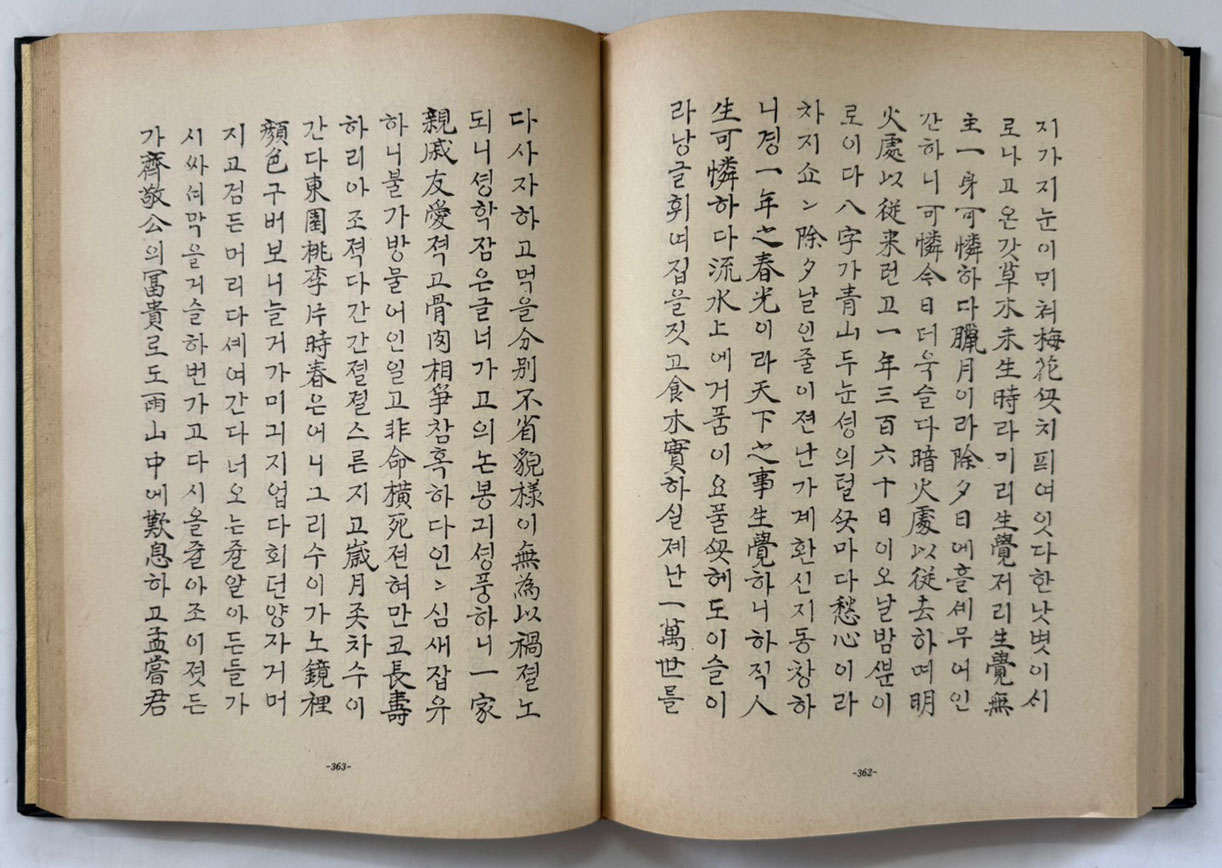 지가지눈이믜쳐梅花송치픠여잇다한낫볏이시
로나고온갓草木未生時라미리生覺저리生覺無
主一身可憐하다臘月이라除夕日에흘셰무어인
간하니可憐今日더욱슬다暗火處以從去하며明
火處以從来런고一年三百六十日이오날밤뿐이
로이다八字가青山두눈셩의털끗마다愁心이라
차지쇼ᄂ除夕날인줄이젼난가계환신지동창하
니경一年之春光이라天下之事生覺하니하직人
生可憐하다流水上에거품이요풀끗헤도이슬이
라낭글휘여집을짓고食木實하실졔난一萬世믈
-362-
다사자하고먹을分別不省貌様이無為以禍졀노
되니셩학잠은글너가고의논봉긔셩풍하니一家
親戚友愛젹고骨肉相爭참혹하다인ᄂ심새잡유
하니불가방물어인일고非命橫死젼혀만코長壽
하리아조젹다간간졀졀스른지고歲月죳차수이
간다東園桃李片時春은어니그리수이가노鏡裡
顔色구버보니늘거가미긔지업다회던양자거머
지고검든머리다셰여간다너오는쥴알아든들가
시싸셔막을거슬하번가고다시올쥴아조이졋든
가齊敬公의冨貴로도雨山中에歎息하고孟嘗君
-363-